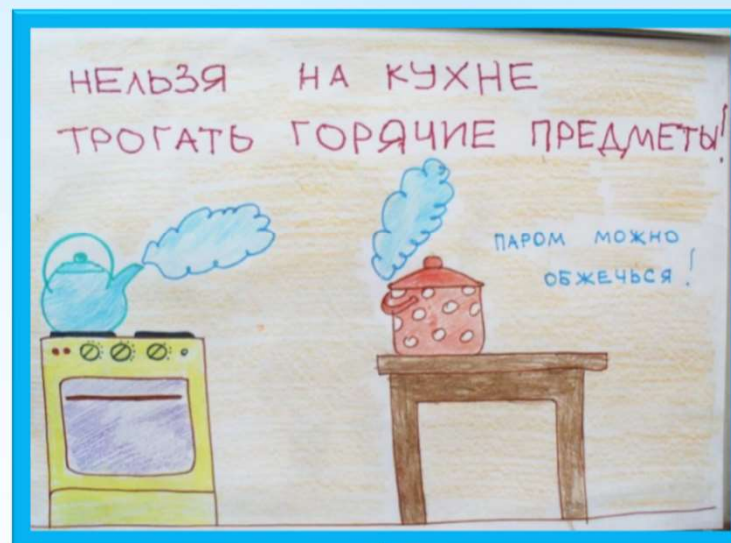 НЕЛЬЗЯ НА КУХНЕ
ТРОГАТЬ ГОРЯЧИЕ ПРЕДМЕТЫ!
ПАРОМ МОЖНО
ОБЖЕЧЬСЯ!